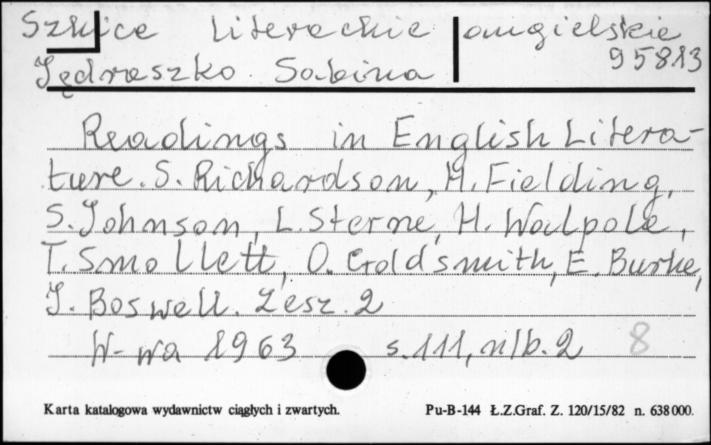 Szkice literackie angielskie
95813
Jędraszko Sabina
Readings in English Litera-
ture. S. Richardson, H. Fielding,
S. Johnson, L. Sterne, H. Walpole,
T. Smollett, O. Goldsmith, E. Burke,
J. Boswell. Zesz. 2
W-wa 1963 s. 111, nlb. 2 8
Karta katalogowa wydawnictw ciągłych i zwartych. Pu-B-144 Ł.Z.Graf. Z. 120/15/82 n. 638000.